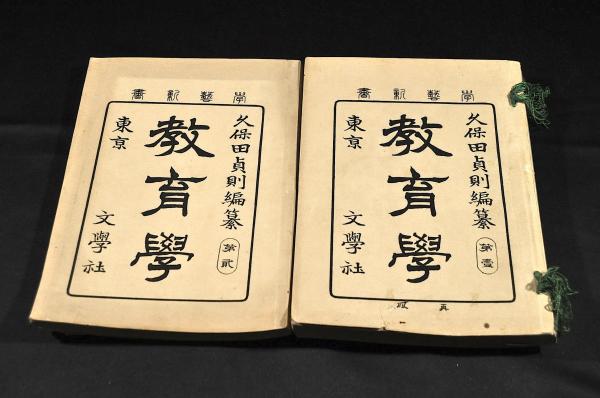 學藝新書
久保田貞則編纂
第壹
教育學
東京 文學社
學藝新書
久保田貞則編纂
第貳
教育學
東京 文學社